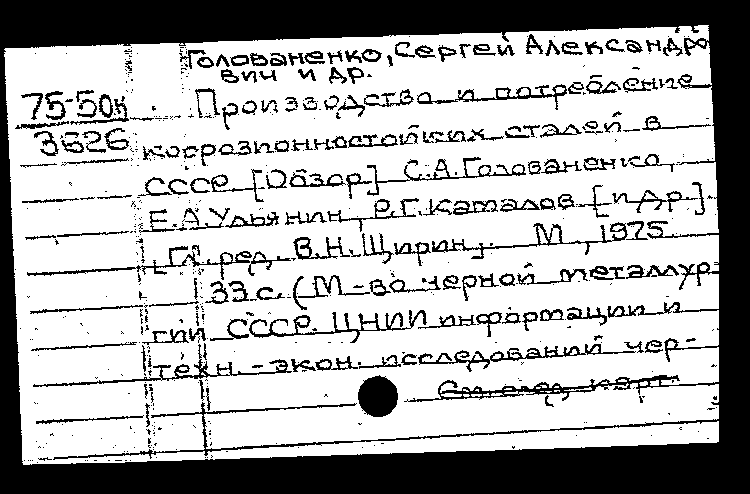 Голованенко, Сергей Александро
вич и др.
75-50к
3626
Производство и потребление
коррозионностойких сталей в
СССР [Обзор] С.А.Голованенко,
Е.А.Ульянин, Р.Г.Каталов [и др.].
Гл. ред. В.Н.Щирин. М., 1975.
33 с. (М-во черной металлур-
гии СССР. ЦНИИ информации и
техн.-экон. исследований чер-
См. след. карт.